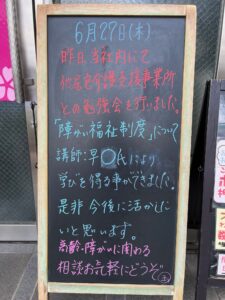 6月27日(木)
昨日、当社内にて
他居宅介護支援事業所
との勉強会を行いました。
「障がい福祉制度」について
講師:早〇氏により
学びを得る事ができました。
是非今後に活かした
いと思います。
高齢・障がいに関わる
相談お気軽にどうぞ